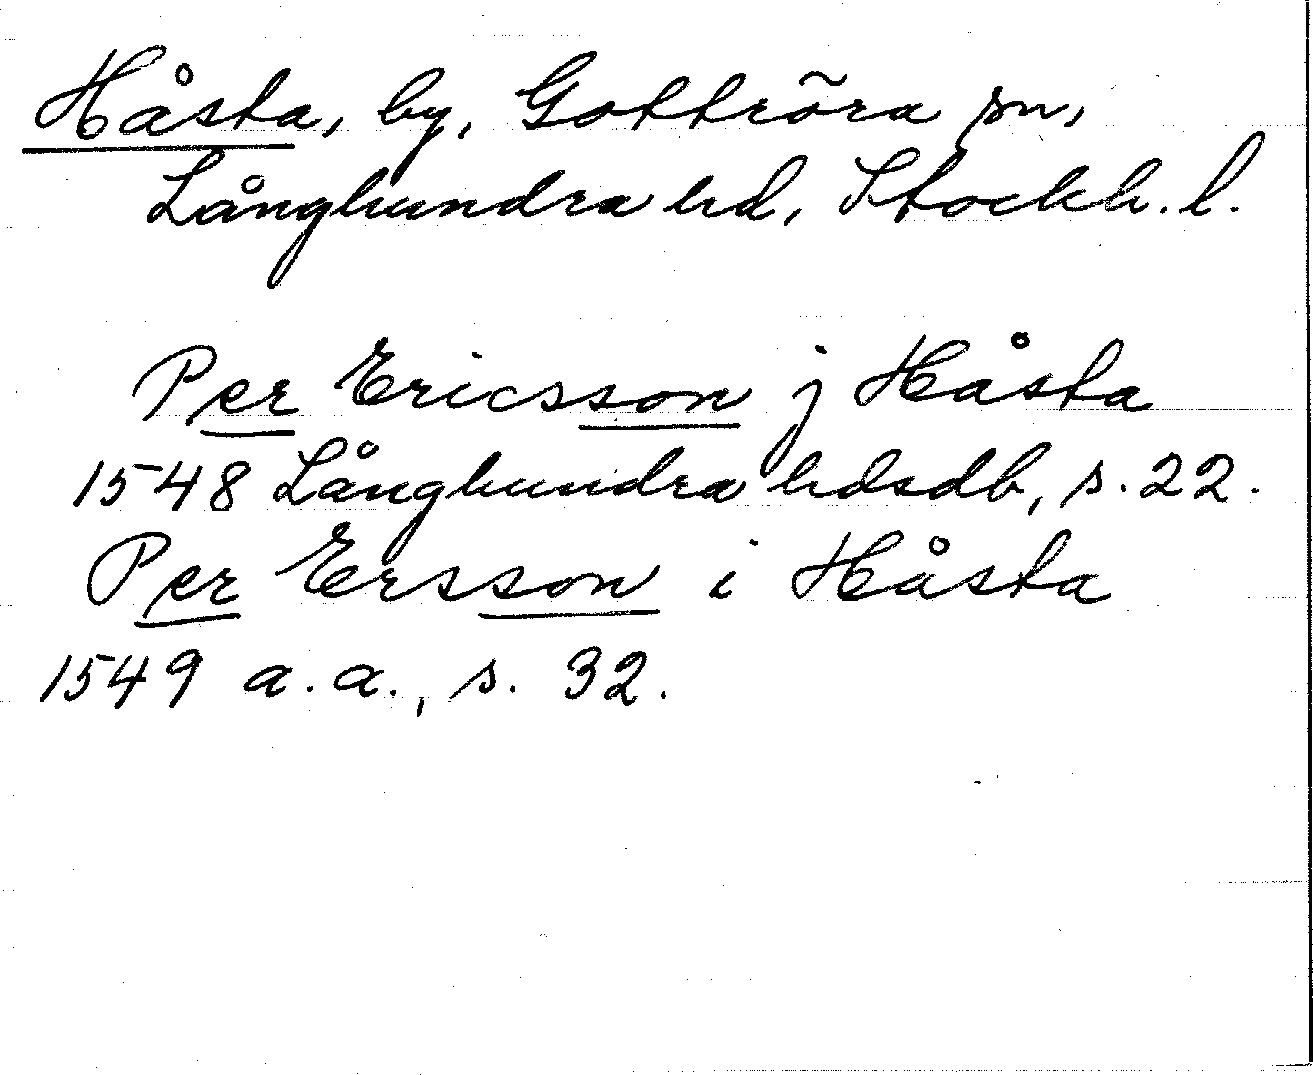 Håsta, by, Gottröra sn,
Långhundra hd, Stockh. l.
Per Ericsson j Håsta
1548 Långhundra hdsdb, s. 22.
Per Ersson i Håsta
1549 a. a., s. 32.